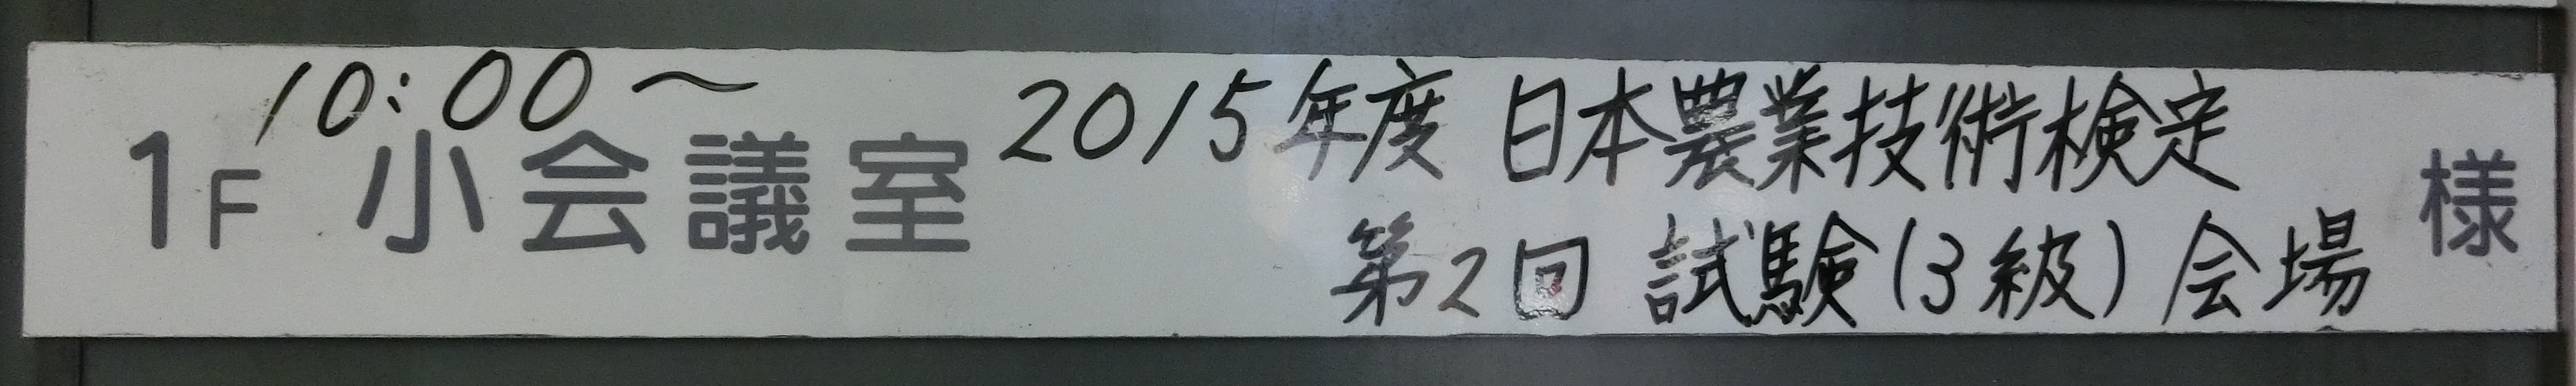 10:00～
1F 小会議室
2015年度 日本農業技術検定
第2回 試験(3級)会場
様